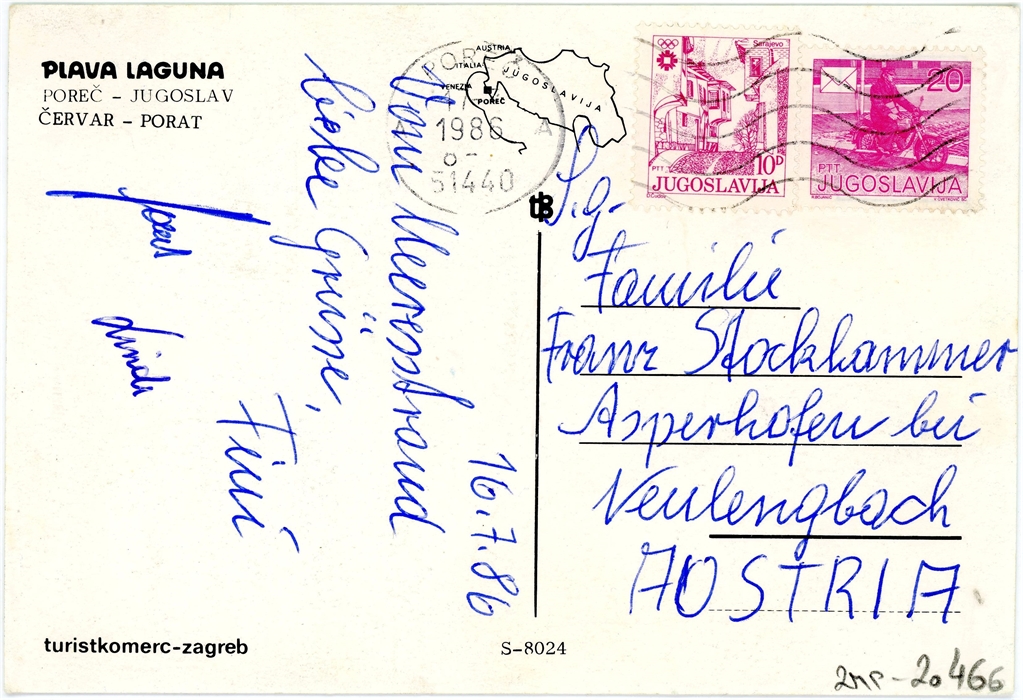 PLAVA LAGUNA
POREČ – JUGOSLAV
ČERVAR – PORAT
AUSTRIA
ITALIA
VENEZIA
JUGOSLAVIJA
POREČ
1986
51440
A
Sarajevo
10D
PTT
JUGOSLAVIJA
20
PTT
JUGOSLAVIJA
16.7.86
Vom Meeresstrand
liebe Grüsse,
Fini
Linda
P.g.
Familie
Franz Stockhammer
Asperhofen bei
Neulengbach
AOSTRIA
turistkomerc-zagreb
S-8024